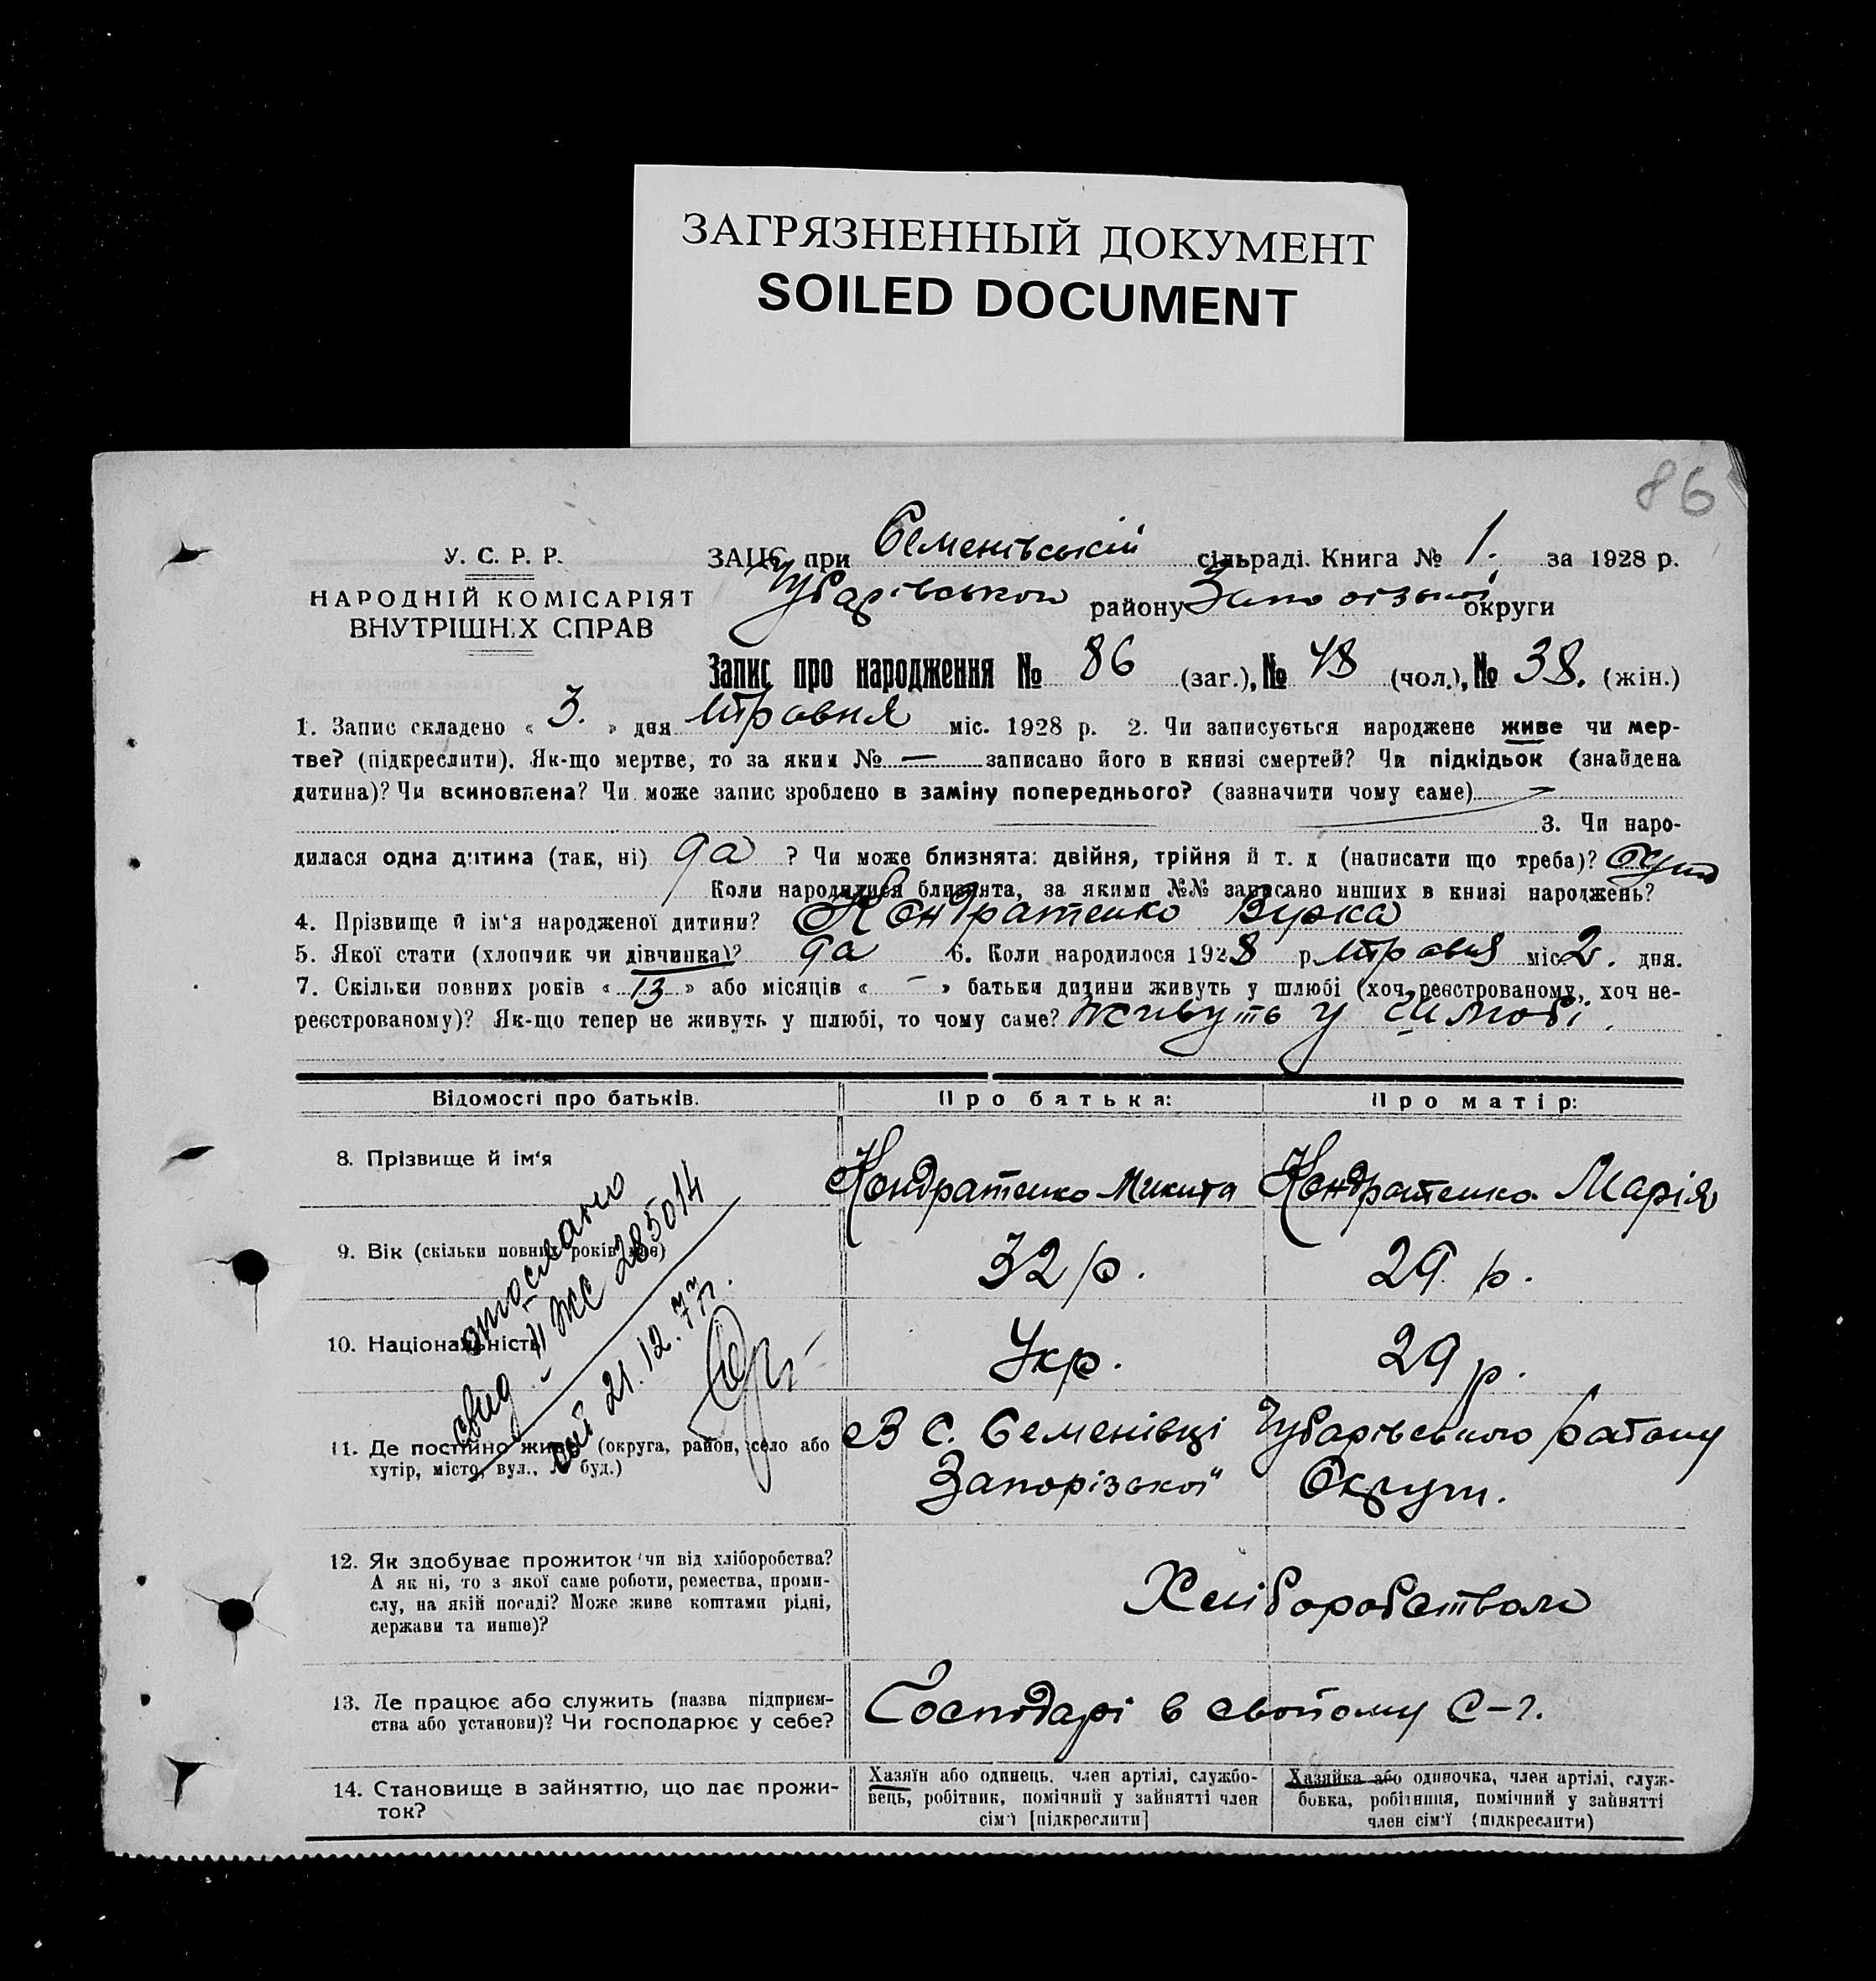 ЗАГРЯЗНЕННЫЙ ДОКУМЕНТ
SOILED DOCUMENT
86
У. С. Р. Р.
НАРОДНІЙ КОМІСАРІЯТ
ВНУТРІШНІХ СПРАВ
ЗАЦС при Семенівській сільраді. Книга № 1. за 1928 р.
Чубарівського району Запорізької округи
Запис про народження № 86 (заг.), № 48 (чол.), № 38. (жін.)
1. Запис складено « 3. » дня Травня міс. 1928 р. 2. Чи записується народжене живе чи мер-
тве? (підкреслити). Як-що мертве, то за яким № — записано його в книзі смертей? Чи підкідьок (знайдена
дитина)? Чи всиновлена? Чи може запис зроблено в заміну попереднього? (зазначити чому саме) —
3. Чи наро-
дилася одна дитина (так, ні) да ? Чи може близнята: двійня, трійня й т. д (написати що треба)?
Коли народилися близнята, за якими №№ записано инших в книзі народжень?
4. Прізвище й ім'я народженої дитини? Кондратенко
5. Якої стати (хлопчик чи дівчинка)? да 6. Коли народилося 1928 р. Травня міс. 2. дня.
7. Скільки повних років « 13 » або місяців « - » батьки дитини живуть у шлюбі (хоч реєстрованому, хоч не-
реєстрованому)? Як-що тепер не живуть у шлюбі, то чому саме? Живуть у шлюбі.
Відомості про батьків. Про батька: Про матір:
8. Прізвище й ім'я Кондратенко Микита Кондратенко Марія
9. Вік (скільки повних років має) 32 р. 29 р.
10. Національність Укр. 29 р.
отослано
свид. II ЖС 285014
21.12.77г.
11. Де постійно живе (округа, район, село або В С. Семенівці Чубарівського району
хутір, місто, вул., № буд.) Запорізької Округи.
12. Як здобуває прожиток чи від хліборобства?
А як ні, то з якої саме роботи, ремества, проми-
слу, на якій посаді? Може живе коштами рідні,
держави та инше)? Хліборобством
13. Де працює або служить (назва підприєм-
ства або установи)? Чи господарює у себе? Господарі в свойому С-г.
14. Становище в зайняттю, що дає прожи-
ток?
Хазяїн або одинець, член артілі, службо-
вець, робітник, помічний у зайнятті член
сім'ї [підкреслити]
Хазяйка або одиночка, член артілі, служ-
бовка, робітниця, помічний у зайнятті
член сім'ї (підкреслити)